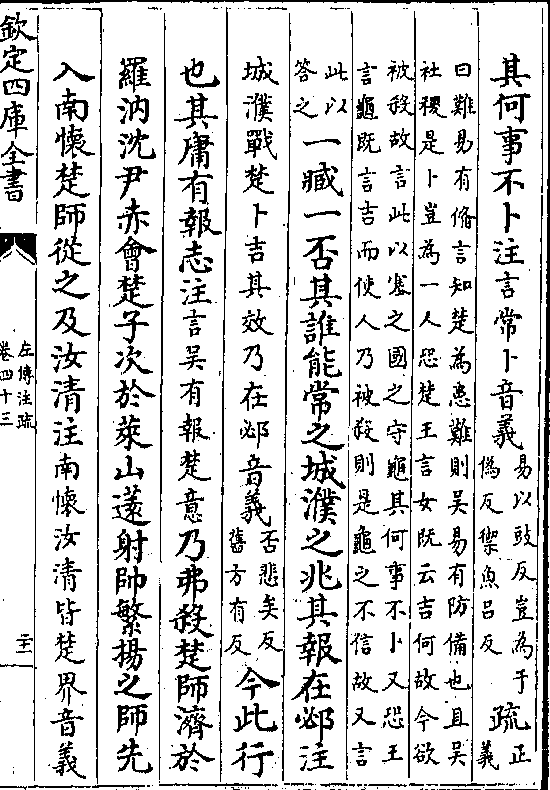 其何事不卜注言常卜音義易以豉反豈為于
偽反禦魚呂反疏正
義
曰難易有脩言知楚為患難則吳易有防備也且吳
社稷是卜豈為一人恐楚王言女既云吉何故今欲
被殺故言此以塞之國之守龜其何事不卜又恐王
言龜既言吉而使人乃被殺則是龜之不信故又言
此以
答之一臧一否其誰能常之城濮之兆其報在邲注
城濮戰楚卜吉其效乃在邲音義否悲矣反
舊方有反今此行
也其庸有報志注言吳有報楚意乃弗殺楚師濟於
羅汭沈尹赤會楚子次於萊山薳射帥繁揚之師先
入南懷楚師從之及汝清注南懷汝清皆楚界音義
欽定四庫全書
左傳注疏
卷四十三
二十一